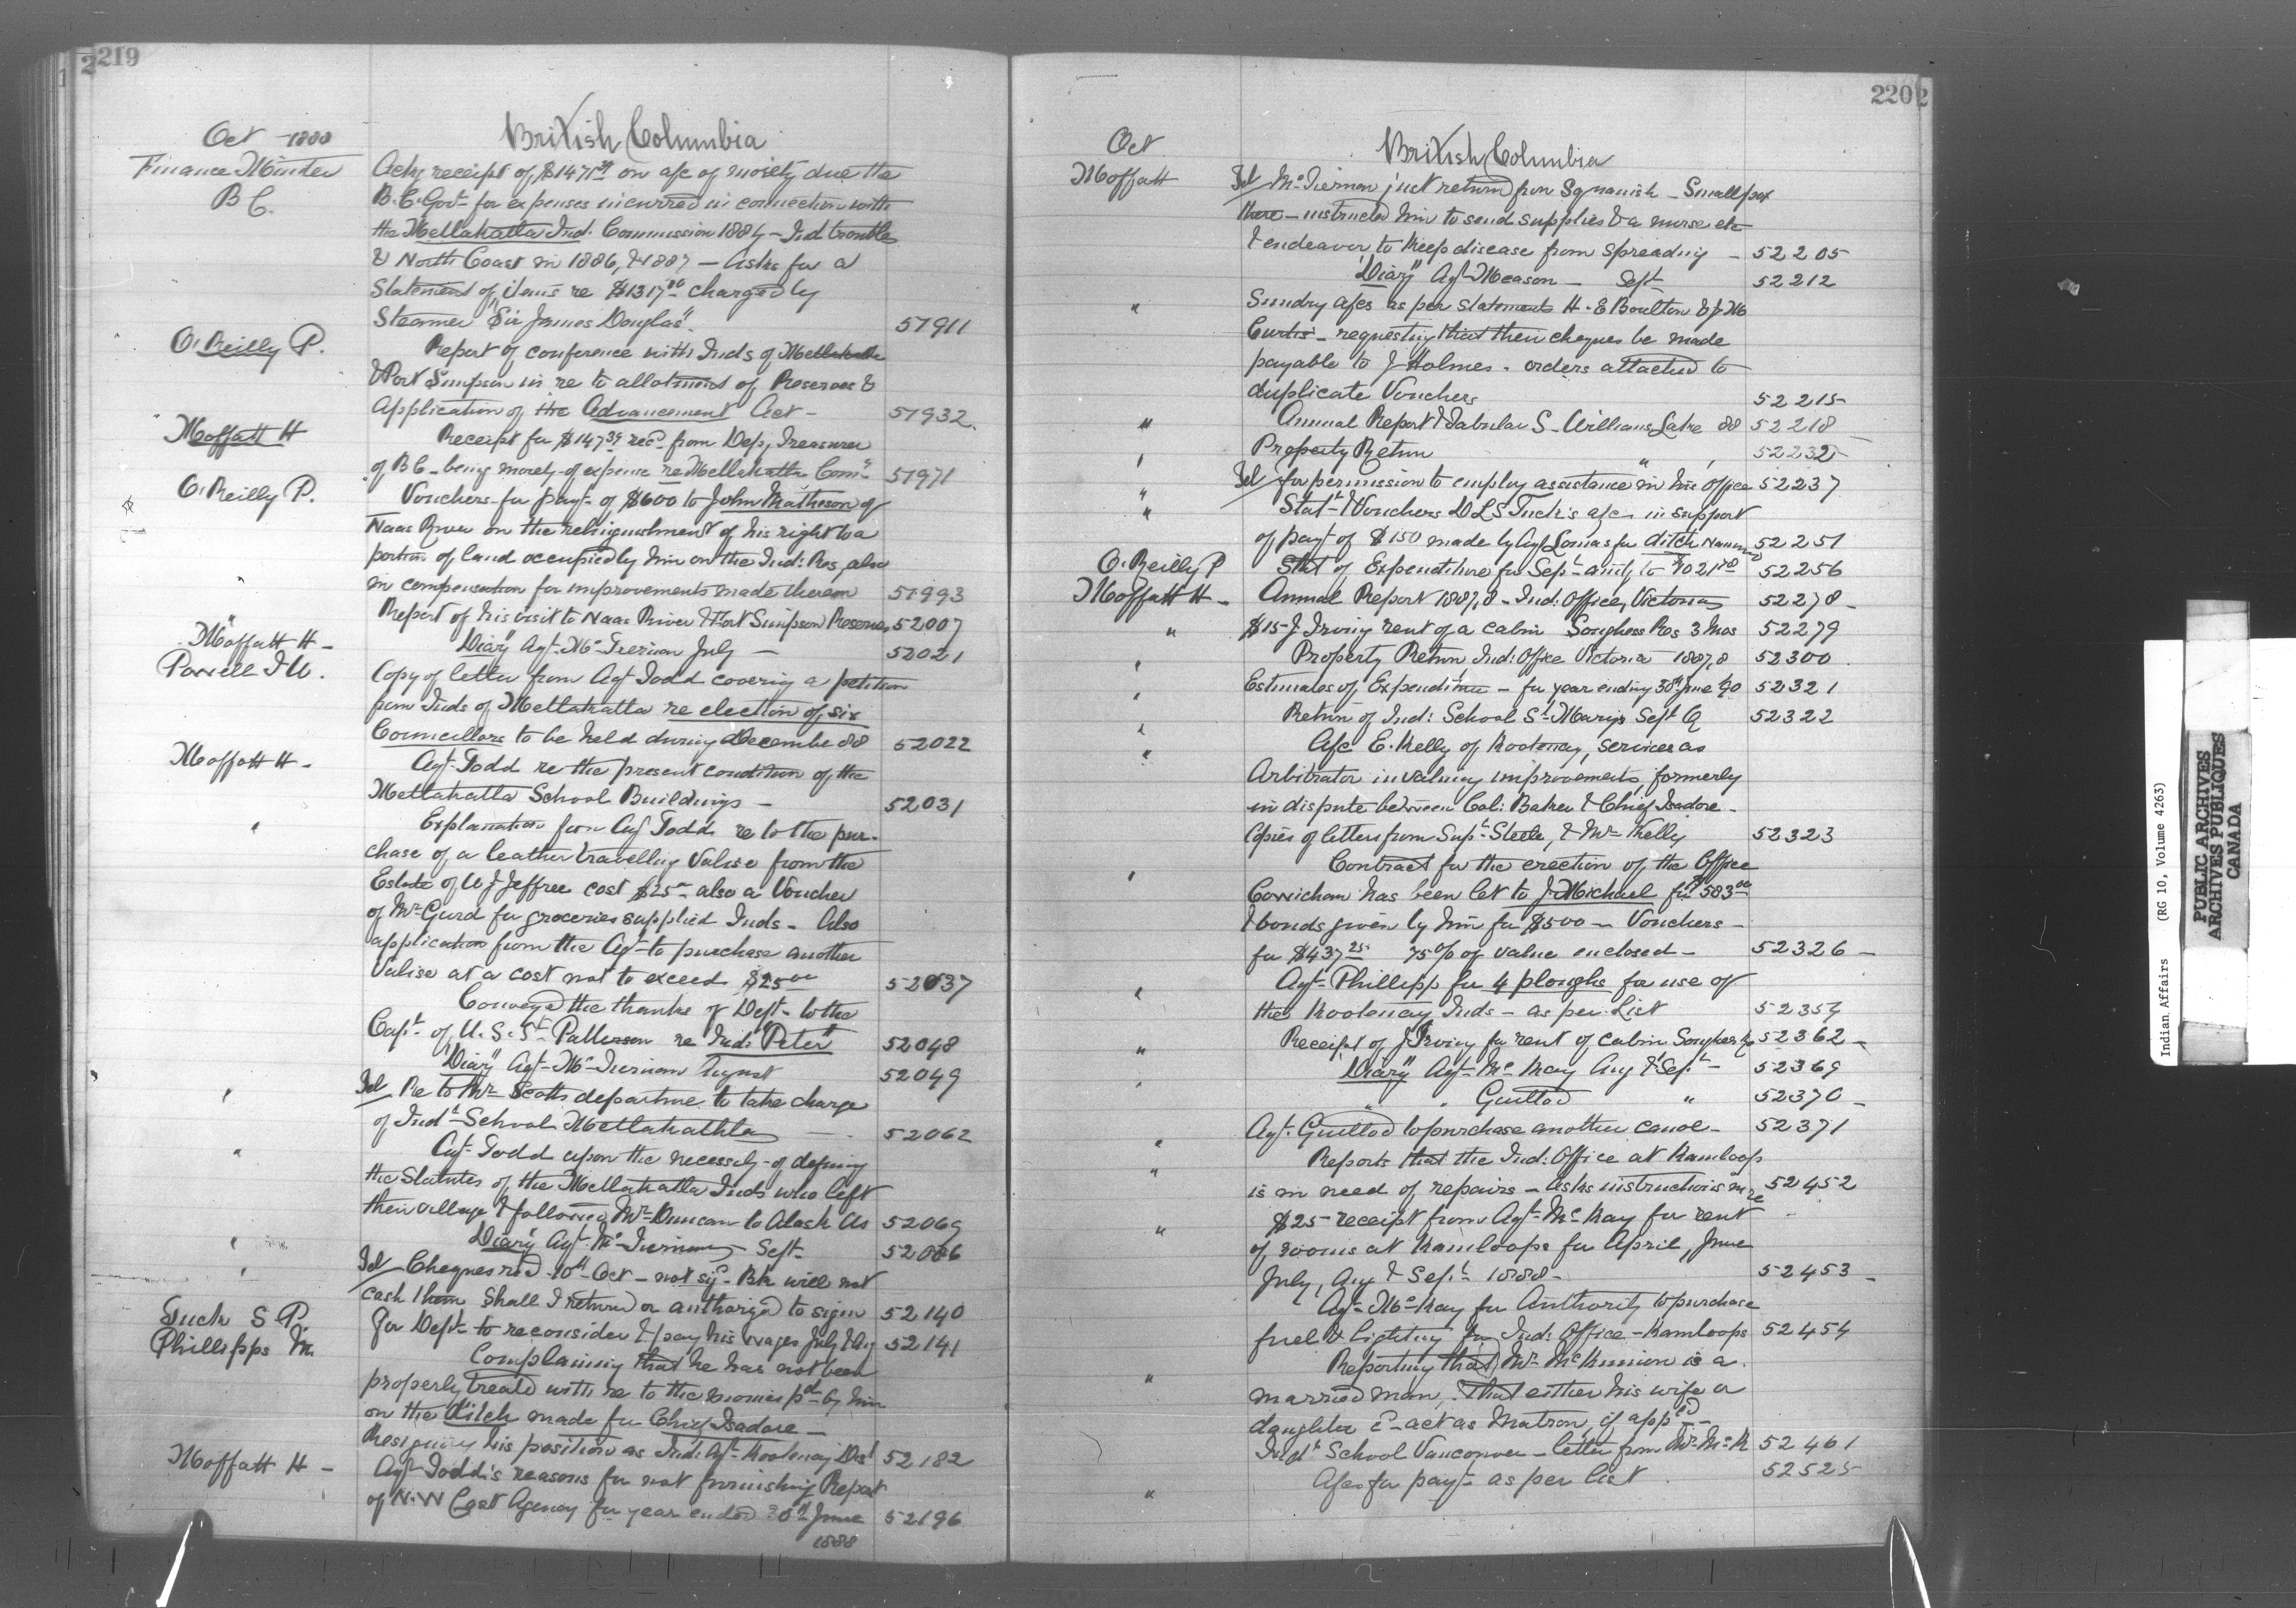 219
Oct 1888
British Columbia
Finance Minister
B C.
Ackg receipt of $147.39 on a/c of moiety due the
B.C. Govt for expenses incurred in connection with
the Metlakatla Ind. Commission 1884 - Ind troubles
& North Coast in 1886, & 1887 - Asks for a
Statement of items re $1317 charged by
Steamer "Sir James Douglas".
51911
O'Reilly P.
Report of conference with Inds of Metlakatla
& Port Simpson in re to allotment of Reserves &
Application of the Advancement Act -
51932.
Moffatt H
Receipt for $147.39 recd from Dep. Treasurer
of B C - being moiety of expense re Metlakatla Comn
51971
O'Reilly P.
Vouchers for payt of $600 to John Matheson of
Naas River on the relinquishment of his right to a
portion of land occupied by him on the Ind: Res, also
in compensation for improvements made thereon
51993
"
Report of his visit to Naas River & Fort Simpson Reserves
52007
Moffatt H -
"Diary" Agt Mc Tiernan July -
52021
Powell I W.
Copy of letter from Agt Todd covering a petition
from Inds of Metlakatla re election of six
Councillors to be held during December 88
52022
Moffatt H -
Agt Todd re the present condition of the
Metlakatla School Buildings -
52031
"
Explanation from Agt Todd re to the pur-
chase of a leather travelling Valise from the
Estate of W J Jeffree cost $25 - also a Voucher
of Mr Gurd for groceries supplied Inds - Also
application from the Agt to purchase another
Valise at a cost not to exceed $25.00
52037
Conveyed the thanks of Dept - to the
Capt of U.S.S. Patterson re Ind: "Peter"
52048
"Diary" Agt Mc Tiernan August
52049
"
Tel Re to Mr Scotts departure to take charge
of Indl School Metlakathla -
52062
"
Agt Todd upon the necessity of defining
the Statutes of the Metlakatla Inds who left
their village & followed Mr Duncan to Alaska
52069
"
"Diary" Agt Mc Tiernan Sept -
52086
"
Tel Cheques recd 10th Oct - not sigd - Bk will not
cash them Shall I return or authorized to sign
52140
Tuck S P.
For Dept - to reconsider & pay his wages July & Aug
52141
Phillipps M.
Complaining that he has not been
properly treated with re to the monies pd by him
on the ditch made for Chief Isadore -
Resigning his position as Ind: Agt - Kootenay Dist
52182
Moffatt H -
Agt Todd's reasons for not furnishing Report
of N.W Coast Agency for year ended 30th June
1888
52196
220
Oct
British Columbia
Moffatt
Tel Mc Tiernan just return from Sqnamish - Smallpox
there - instructed him to send supplies & a nurse etc
& endeavor to keep disease from spreading -
52205
"Diary" Agt Meason - Sept
52212
"
Sundry a/cs as per statements H. E Boulton & J M
Curtis - requesting that their cheques be made
payable to J Holmes - orders attached to
duplicate Vouchers
52215
"
Annual Report & Tabular S - Williams Lake 88
52218
"
Property Return " "
52232
"
Tel for permission to employ assistance in his Office
52237
"
Statt & Vouchers D L S Tuck's a/c in support
of payt of $150 made by Agt Lomas for ditch
52251
O'Reilly P
Stat of Expenditure for Sept - amtg to $1021.78
52256
Moffatt H -
Annual Report 1887,8 - Ind: Office, Victoria
52278 -
"
$15 - J Irving rent of a cabin Songhees Res 3 Mos
52279
"
Property Return, Ind: Office Victoria 1887,8
52300
"
Estimates of Expenditure - for year ending 30th June 90
52321
"
Return of Ind: School St Mary's Sept Q
52322
"
A/c E. Kelly of Kootenay, services as
Arbitrator in valuing improvements, formerly
in dispute between Col: Baker & Chief Isadore -
Copies of letters from Supt Steele, & Mr Kelly
52323
"
Contract for the erection of the Office
Cowichan has been let to J Michael for $583.00
& bonds given by him for $500 - Vouchers -
for $437.25 75% of value enclosed -
52326 -
"
Agt Phillipp for 4 ploughs for use of
the Kootenay Inds - as per List
52354
"
Receipt of J Irving for rent of cabin Songhees
52362 -
"
"Diary" Agt Mc Kay Aug & Sept -
52369
" " Guillod "
52370 -
"
Agt Guillod to purchase another canoe -
52371
"
Reports that the Ind: Office at Kamloops
is in need of repairs - Asks instructions in re
52452
"
$25 - receipt from Agt Mc Kay for rent
of rooms at Kamloops for April, June
July, Aug & Sept 1888 -
52453 -
Agt Mc Kay for Authority to purchase
fuel & lighting for Ind: Office - Kamloops
52454
"
Reporting that Mr McKinnion is a
married man, that either his wife or
daughter cd act as Matron, if appd -
Indl School Vancouver - letter from Mr Mc K
52461
"
A/cs for payt as per list
52525
Indian Affairs (RG 10, Volume 4263)
PUBLIC ARCHIVES
ARCHIVES PUBLIQUES
CANADA